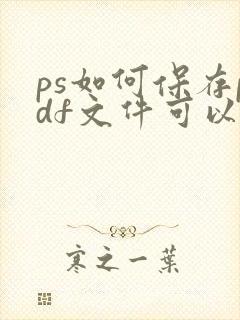 ps如何保存p
df文件可以
寒之一葉